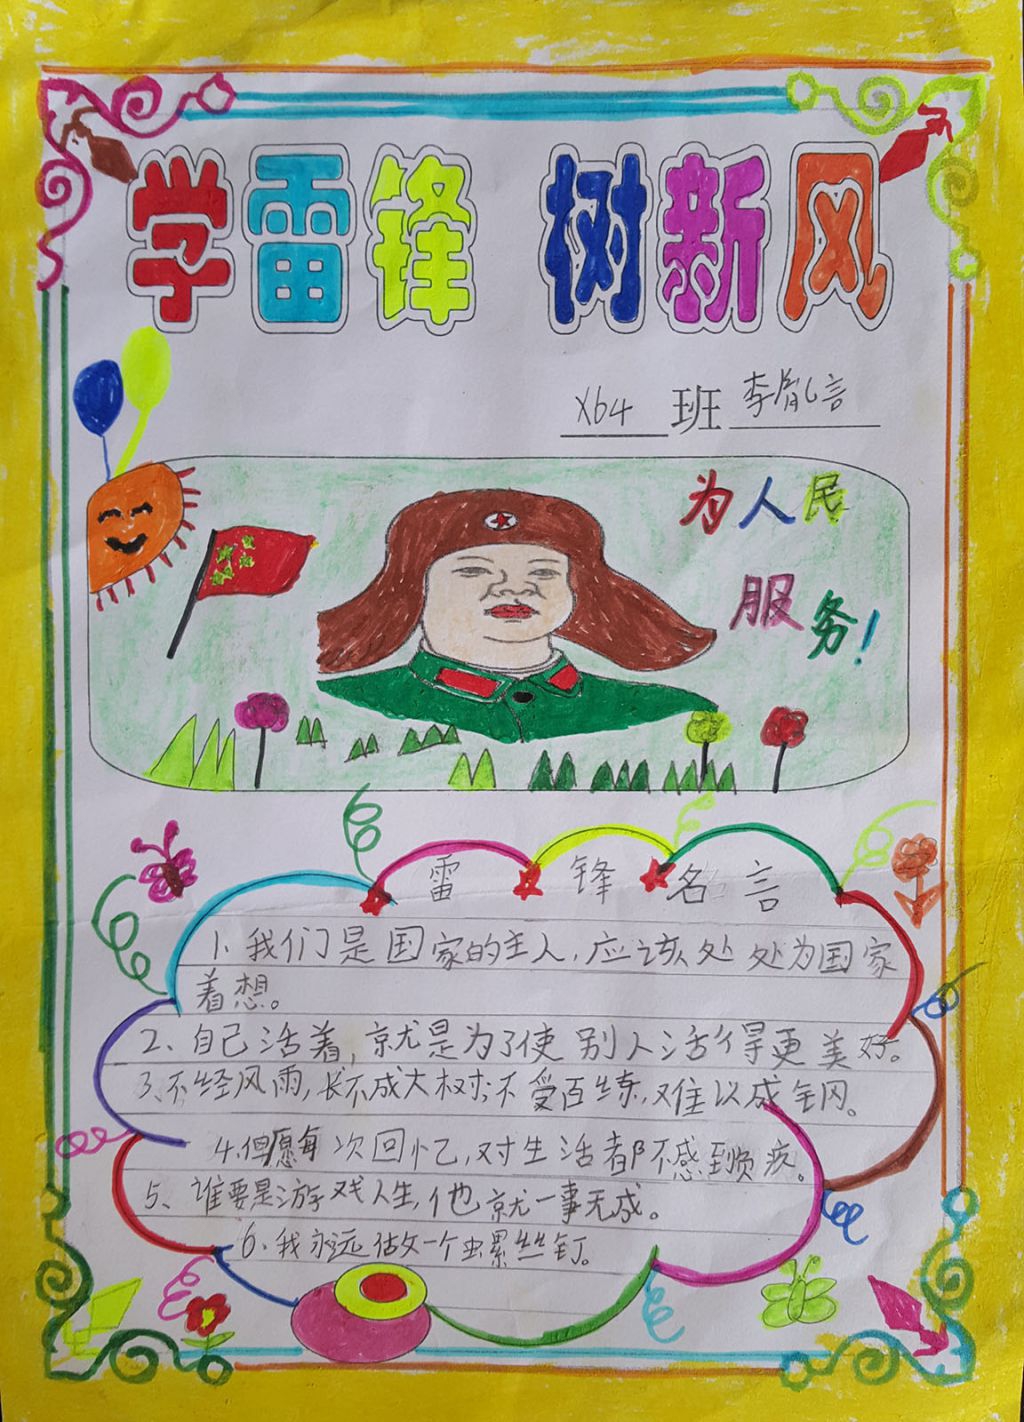 学雷锋 树新风
X64 班 李胤言
为人民
服务!
雷锋名言
1、我们是国家的主人,应该处处为国家
着想。
2、自己活着,就是为了使别人活得更美好。
3、不经风雨,长不成大树;不受百练,难以成钢。
4、但愿每次回忆,对生活都不感到负疚。
5、谁要是游戏人生,他就一事无成。
6、我永远做一个螺丝钉。